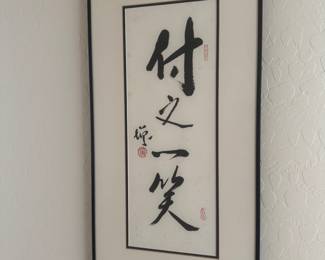 付之一笑